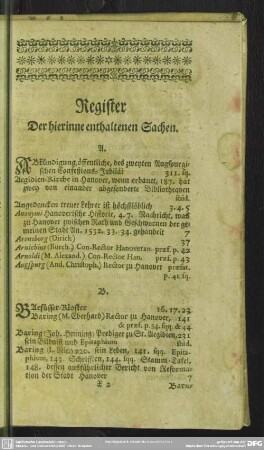 Register
Der hierinne enthaltenen Sachen.
A.
ABkündigung, öffentliche, des zweyten Augspurgi-
schen Confeßions-Jubiläi 311. sq.
Aegidien-Kirche in Hanover, wenn erbauet, 187. hat
zwey von einander abgesonderte Bibliothequen
ibid.
Angedencken treuer Lehrer ist höchstlöblich 3. 4. 5
Anonymi Hanoverische Historie, 4. 7. Nachricht, was
zu Hanover zwischen Rath und Geschwornen der ge-
meinen Stadt An. 1532. 33. 34. gehandelt 7
Aremberg (Dirich) 37
Arnisius (Burch.) Con-Rector Hanoveran. præf. p. 42
Arnoldi (M. Alexand.) Con-Rector Han. præf. 43
Augspurg (And. Christoph.) Rector zu Hanover præfat.
p. 41 sq.
B.
BArfüsser-Klöster 16. 17. 23
Baring (M. Eberhard) Rector zu Hanover, 141
& præf. p. 34. sqq. & 44
Baring (Joh. Henning) Prediger zu St. Aegidien, 231
sein Bildniß und Epitaphium ibid.
Baring (L. Ulric) 220. sein Leben, 141. sqq. Epita-
phium, 143. Schrifften, 144. sqq. Stamm-Tafel,
148. dessen ausführlicher Bericht von Reforma-
tion der Stadt Hanover 7
X 2 Barns